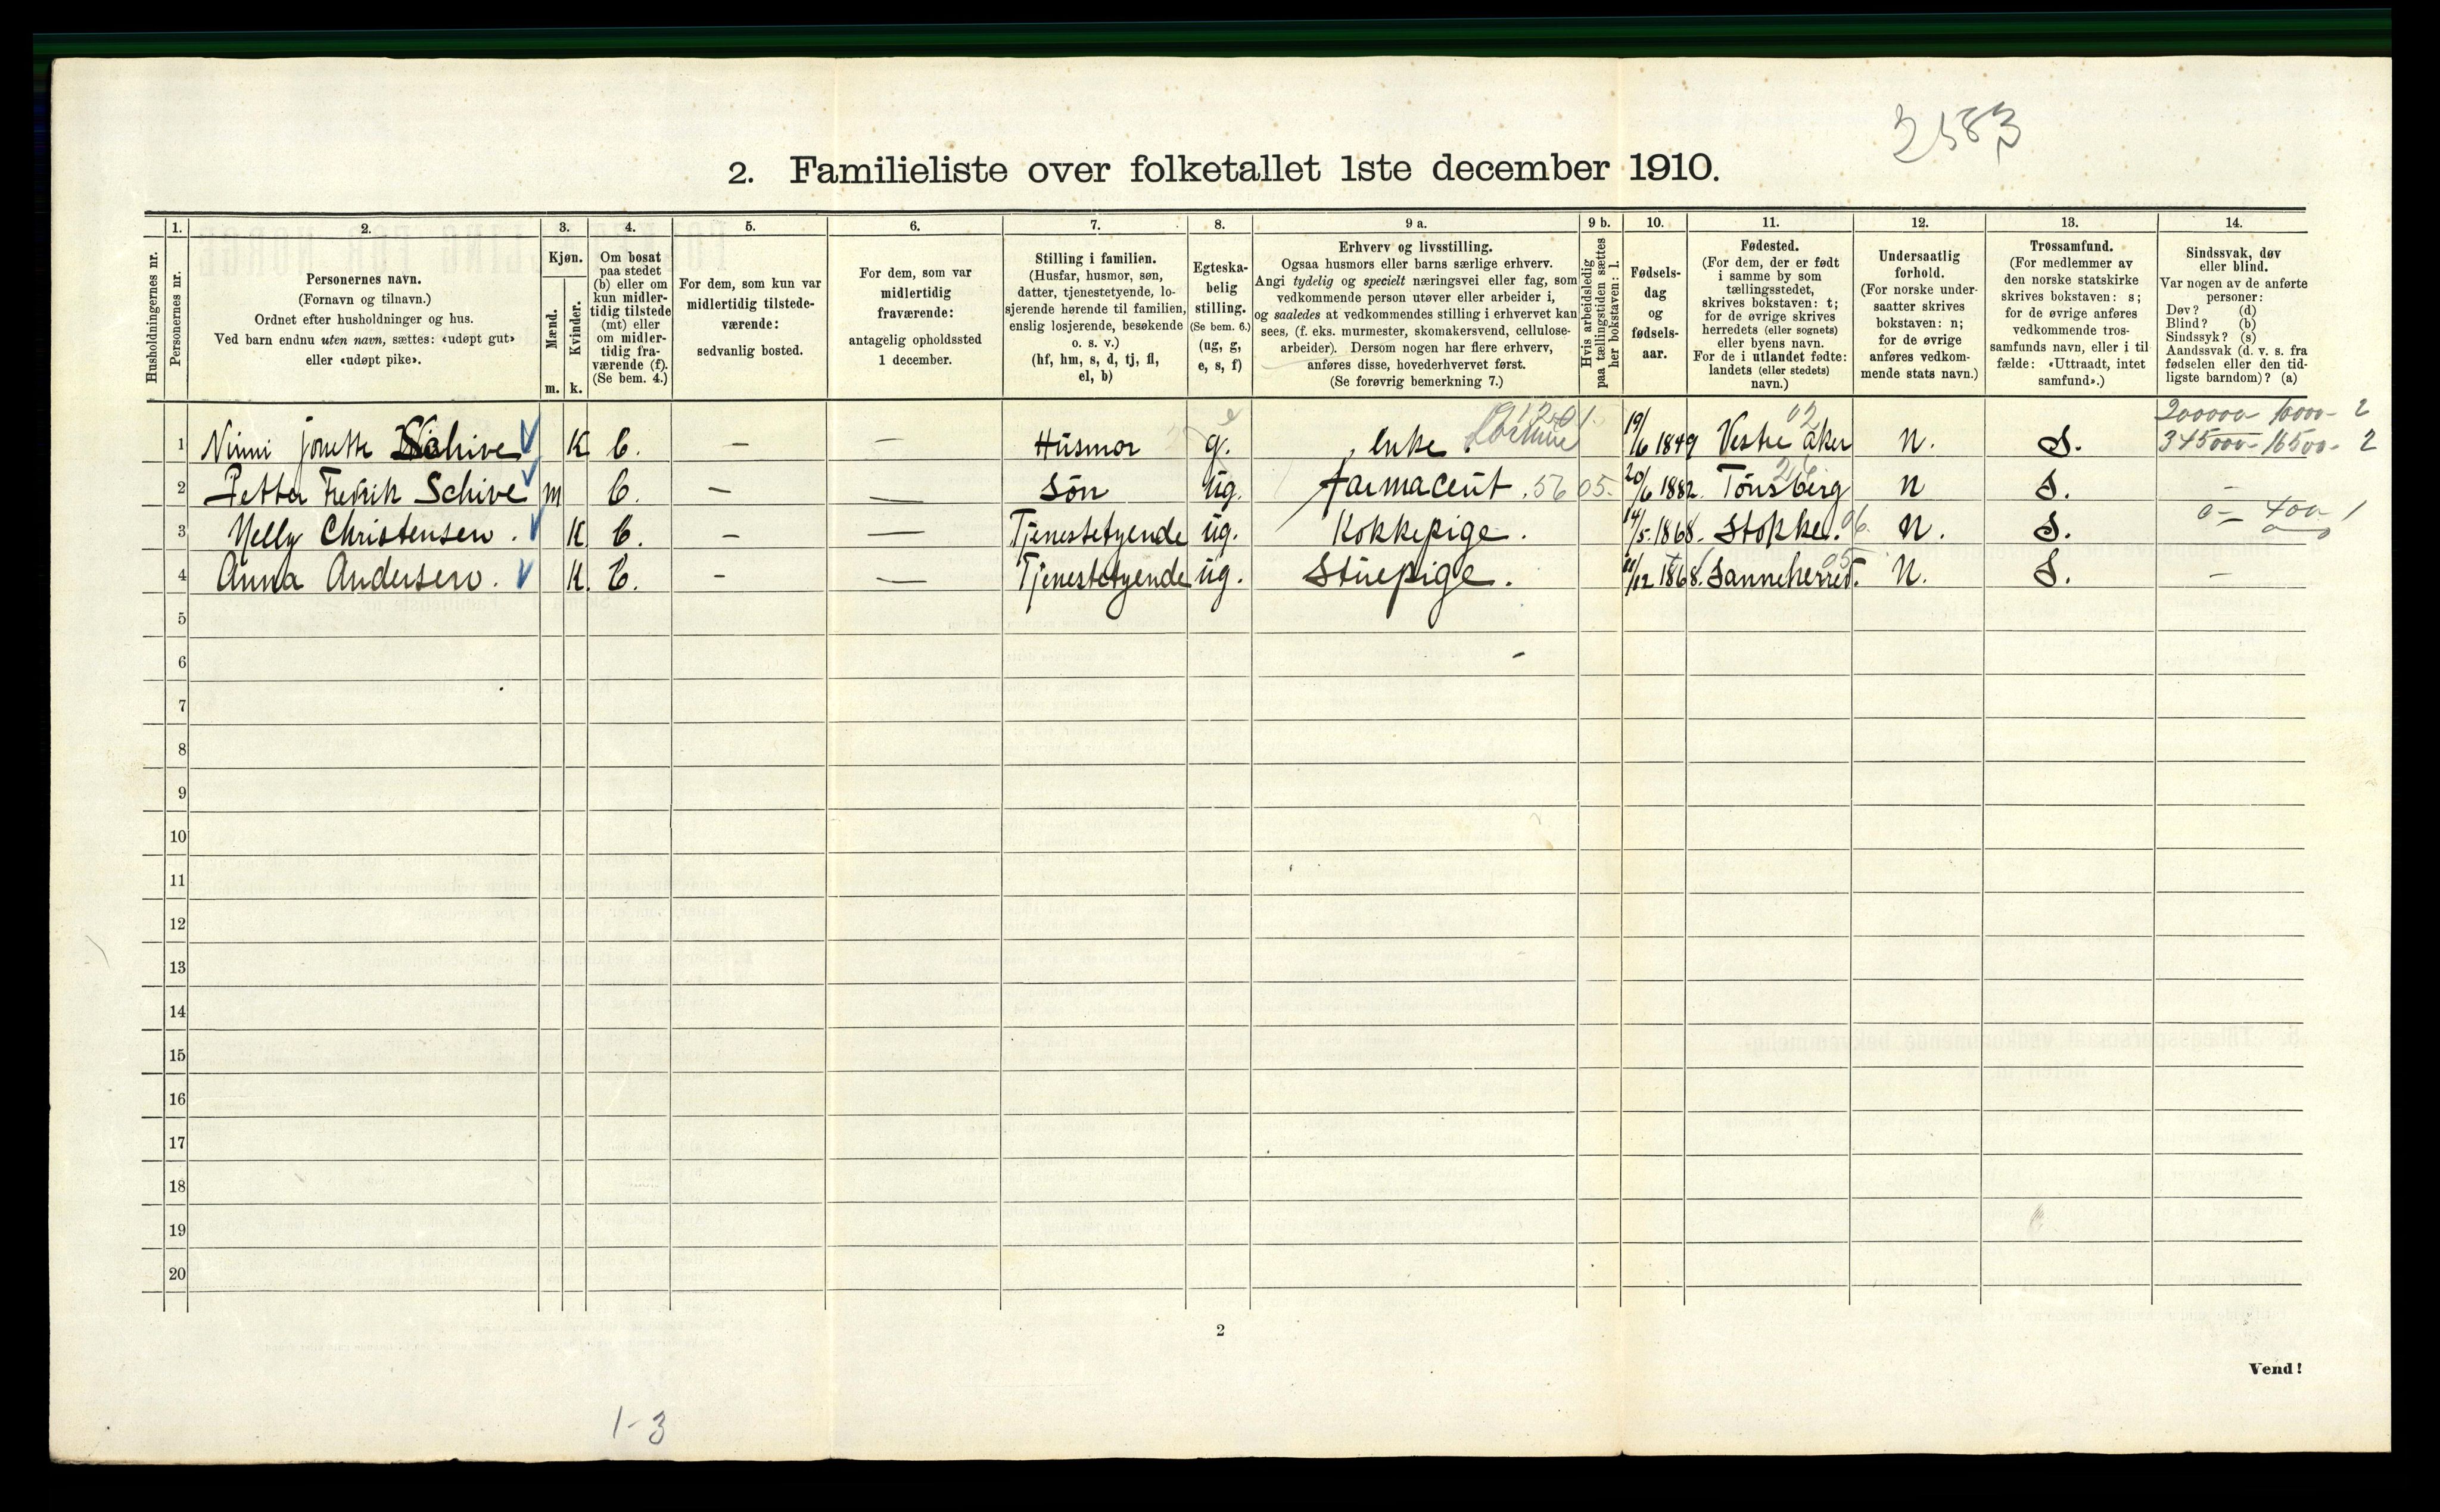 2583
2. Familieliste over folketallet 1ste december 1910.
1. 2. 3. 4. 5. 6. 7. 8. 9 a. 9 b. 10. 11. 12. 13. 14.
Husholdningernes nr.
Personernes nr.
Personernes navn.
(Fornavn og tilnavn.)
Ordnet efter husholdninger og hus.
Ved barn endnu uten navn, sættes: «udøpt gut»
eller «udøpt pike».
Kjøn.
Mænd. m.
Kvinder. k.
Om bosat
paa stedet
(b) eller om
kun midler-
tidig tilstede
(mt) eller
om midler-
tidig fra-
værende (f).
(Se bem. 4.)
For dem, som kun var
midlertidig tilstede-
værende:
sedvanlig bosted.
For dem, som var
midlertidig
fraværende:
antagelig opholdssted
1 december.
Stilling i familien.
(Husfar, husmor, søn,
datter, tjenestetyende, lo-
sjerende hørende til familien,
enslig losjerende, besøkende
o. s. v.)
(hf, hm, s, d, tj, fl,
el, b)
Egteska-
belig
stilling.
(Se bem. 6.)
(ug, g,
e, s, f)
Erhverv og livsstilling.
Ogsaa husmors eller barns særlige erhverv.
Angi tydelig og specielt næringsvei eller fag, som
vedkommende person utøver eller arbeider i,
og saaledes at vedkommendes stilling i erhvervet kan
sees, (f. eks. murmester, skomakersvend, cellulose-
arbeider). Dersom nogen har flere erhverv,
anføres disse, hovederhvervet først.
(Se forøvrig bemerkning 7.)
Hvis arbeidsledig
paa tællingstiden sættes
her bokstaven: l.
Fødsels-
dag
og
fødsels-
aar.
Fødested.
(For dem, der er født
i samme by som
tællingsstedet,
skrives bokstaven: t;
for de øvrige skrives
herredets (eller sognets)
eller byens navn.
For de i utlandet fødte:
landets (eller stedets)
navn.)
Undersaatlig
forhold.
(For norske under-
saatter skrives
bokstaven: n;
for de øvrige
anføres vedkom-
mende stats navn.)
Trossamfund.
(For medlemmer av
den norske statskirke
skrives bokstaven: s;
for de øvrige anføres
vedkommende tros-
samfunds navn, eller i til-
fælde: «Uttraadt, intet
samfund».)
Sindssvak, døv
eller blind.
Var nogen av de anførte
personer:
Døv? (d)
Blind? (b)
Sindssyk? (s)
Aandssvak (d. v. s. fra
fødselen eller den tid-
ligste barndom)? (a)
200000 10000- 2
1 Ninni Jonette Schive K b. – – Husmor g. enke 19/6 1849 Vestre Aker 02 n. S. 345000- 16500- 2
2 Petter Fredrik Schive m b. – – Søn ug. farmaceut. 56 05. 20/6 1882. Tønsberg n S. –
3 Nelly Christensen. K b. – – Tjenestetyende ug. Kokkepige. 14/5 1868. Stokke. 06 n. S. 0– 400 1
4 Anna Andersen. K. b. – – Tjenestetyende ug. Stuepige. /12 1868. Sanneherred. 05 n. S. –
5
6
7
8
9
10
11
12
13
14
15
16
17
18
19
20
2
Vend!
1-3